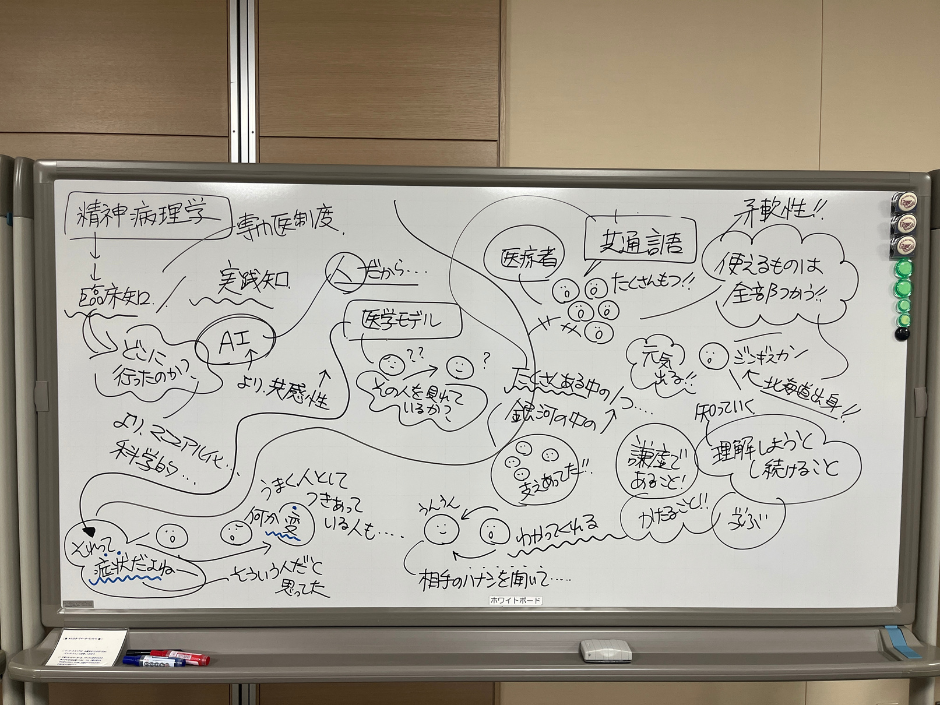 精神病理学
専門医制度.
臨床知..
実践知
人だから....
AI
どこに
行ったのか?
より、共感性
より、マニュアル化..
科学的...
医学モデル
?? ?
その人を見れて
いるか?
医療者
共通言語
たくさんもつ!!
柔軟性!!
使えるものは
全部つかう!!
元気
出る!!
ジンギスカン
北海道出身!!
たくさんある中の1つ....
銀河の中の
支えあってだ!!
知っていく
謙虚で
あること!
理解しようと
し続けること
かたること!!
学ぶ
うまく人として
つきあって
いる人も....
何か変
それって
症状だよね
そういう人だと
思ってた
うんうん
わかってくれる
相手のハナシを聞いて.....
ホワイトボード